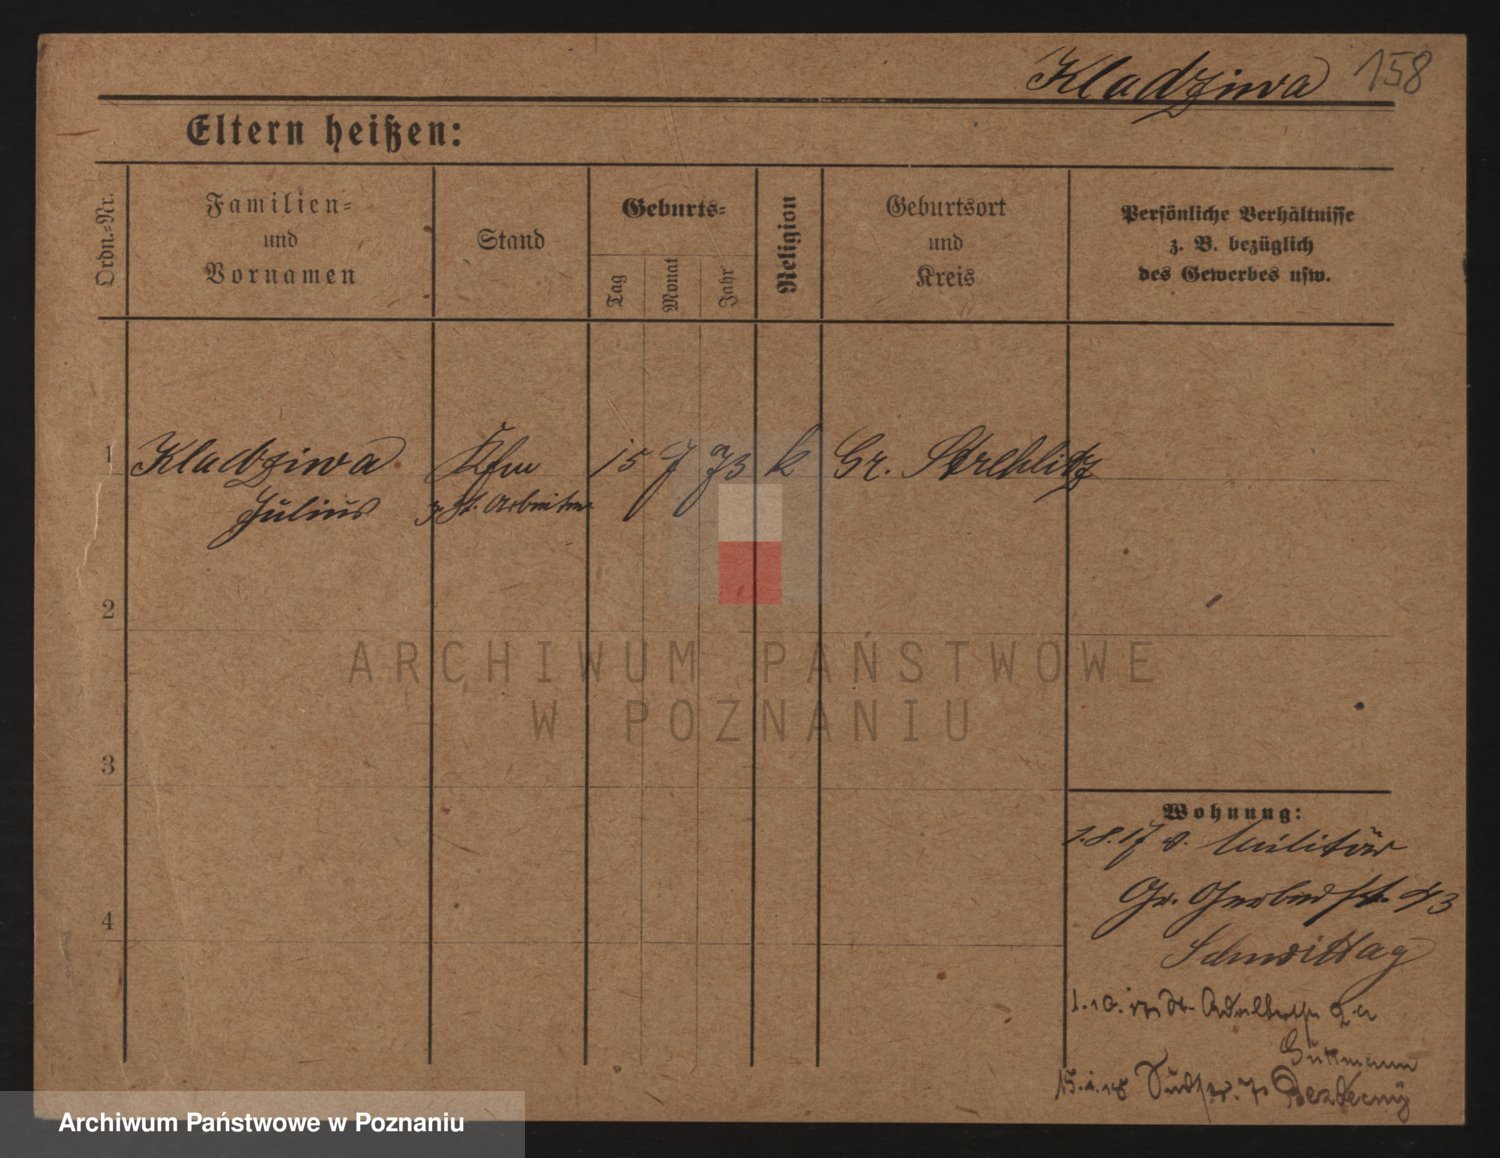 Kladziwa 158
Eltern heißen:
Ordn.=Nr.
Familien=
und
Vornamen
Stand
Geburts=
Tag
Monat
Jahr
Religion
Geburtsort
und
Kreis
Persönliche Verhältnisse
z. B. bezüglich
des Gewerbes usw.
1 Kladziwa Kfm 15 7 73 k Gr. Strehlitz
Julius z. Zt. Arbeiter
2
3
4
Wohnung:
1.8.17 v. Militär
Gr. Gerberstr. 43
Schmittag
1.10. Adalbertstr
Gutmann
15.1.18 Bezdecny
ARCHIWUM PAŃSTWOWE
W POZNANIU
Archiwum Państwowe w Poznaniu